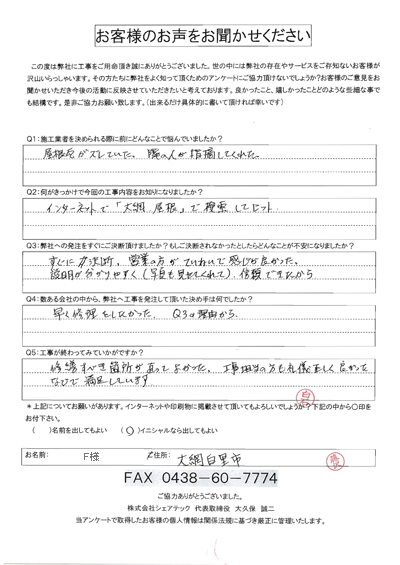 お客様のお声をお聞かせください
この度は弊社に工事をご用命頂き誠にありがとうございました。世の中には弊社の存在やサービスをご存知ないお客様が
沢山いらっしゃいます。その方たちに弊社をよく知って頂くためのアンケートにご協力頂けないでしょうか?お客様のご意見をお
聞かせいただき今後の活動に反映させていただきたいと考えております。良かったこと、嬉しかったことどのような些細な事で
も結構です。是非ご協力お願い致します。(出来るだけ具体的に書いて頂ければ幸いです)
Q1:施工業者を決められる際に前にどんなことで悩んでいましたか?
屋根瓦がズレていた。隣の人が指摘してくれた。
Q2:何がきっかけで今回の工事内容をお知りになりましたか?
インターネットで「大網 屋根」で検索してヒット
Q3:弊社への発注をすぐにご決断頂けましたか?もしご決断されなかったとしたらどんなことが不安になりましたか?
すぐに決断。営業の方がていねいで感じが良かった。
説明が分かりやすく(写真も見せてくれて)、信頼できたから
Q4:数ある会社の中から、弊社へ工事を発注して頂いた決め手は何でしたか?
早く修理をしたかった。Q3の理由から。
Q5:工事が終わってみていかがですか?
修繕すべき箇所が直ってよかった。工事担当の方も礼儀正しく良かった
なので満足しています
*上記についてお願いがあります。インターネットや印刷物に掲載させて頂いてもよろしいでしょうか?下記の中から〇印を
お付け下さい。
( )名前を出してもよい (〇)イニシャルなら出してもよい
お名前: F様 ご住所: 大網白里市
FAX 0438-60-7774
ご協力ありがとうございました。
株式会社シェアテック 代表取締役 大久保 誠二
当アンケートで取得したお客様の個人情報は関係法規に基づき厳正に管理いたします。